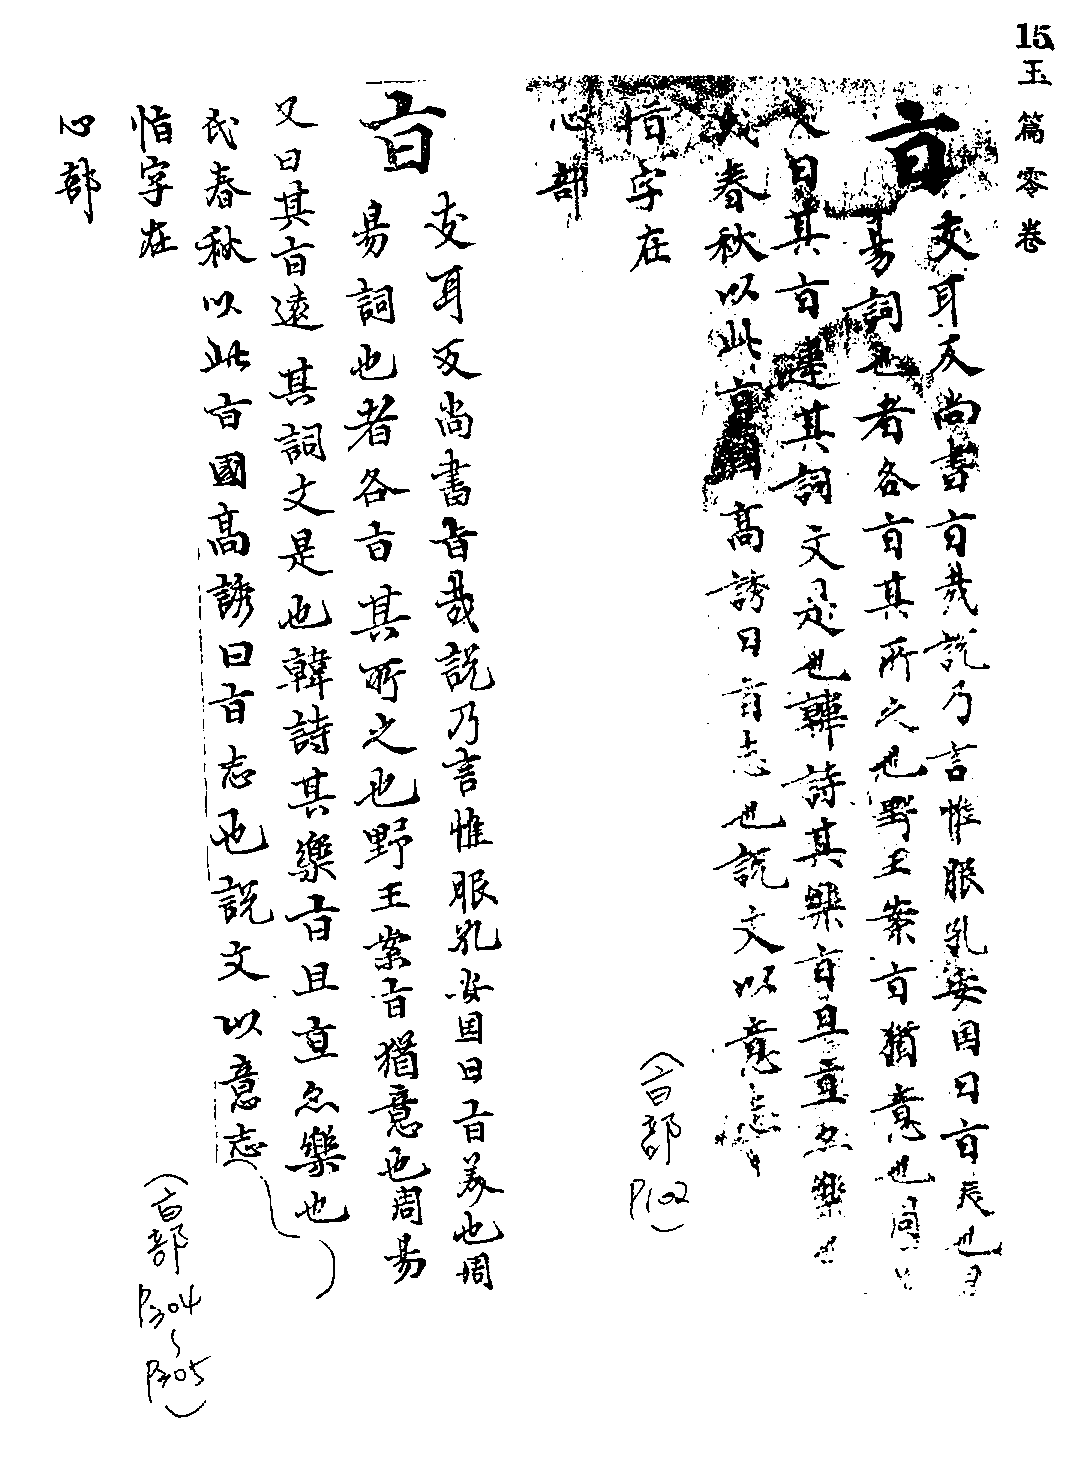 15 玉篇零卷
㫖
支耳反尚書㫖㢤說乃言惟服孔安国曰㫖美也周
易詞也者各㫖其所之也野王案㫖猶意也周易
又曰其㫖遠其詞文是也韓詩其樂㫖且亶亶樂也
氏春秋以此㫖國高誘曰㫖志也說文以意
恉字在
心部
(㫖部
P102)
㫖
支耳反尚書㫖㢤說乃言惟服孔安国曰㫖美也周
易詞也者各㫖其所之也野王案㫖猶意也周易
又曰其㫖遠其詞文是也韓詩其樂㫖且亶也樂也
氏春秋以此㫖國高誘曰㫖志也說文以意志
恉字在
心部
(㫖部
P304
~
P305)